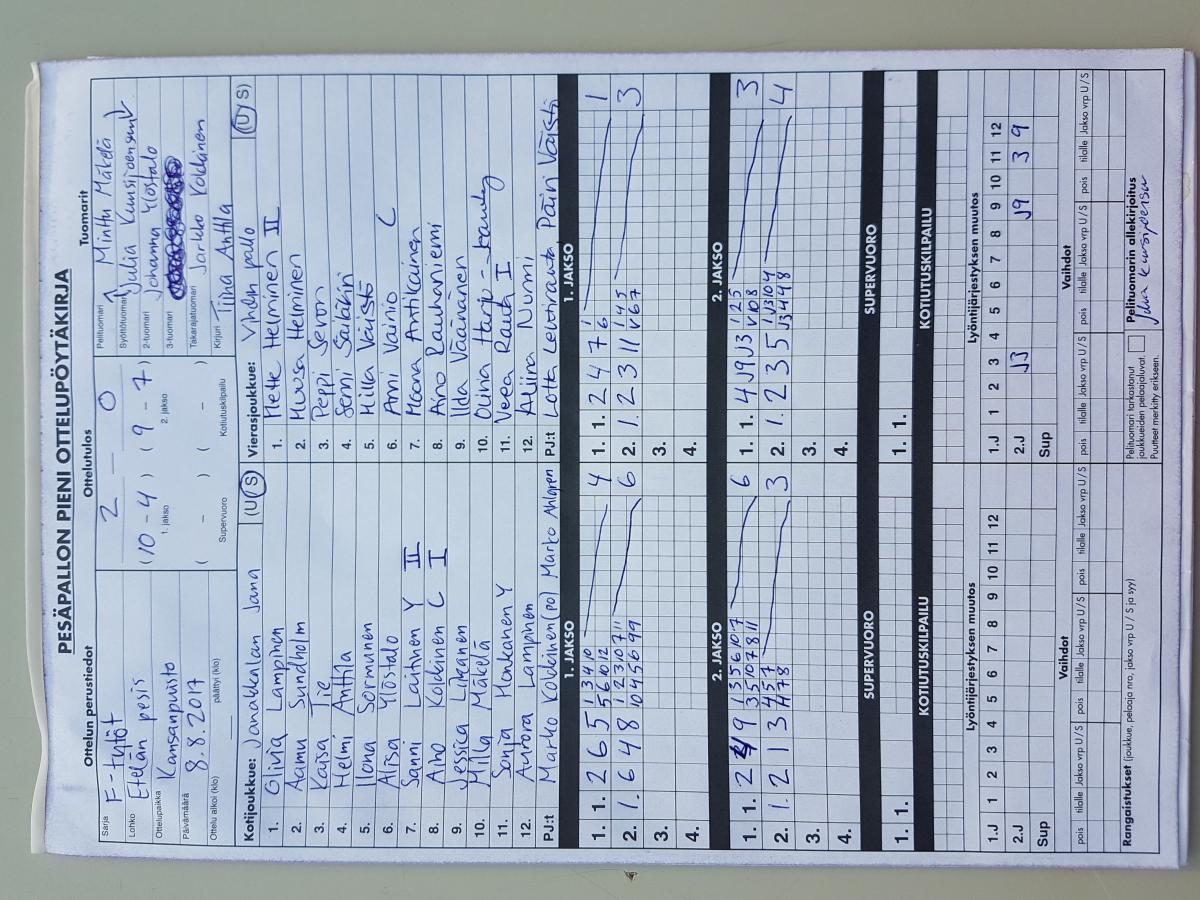 PESÄPALLON PIENI OTTELUPÖYTÄKIRJA
Ottelun perustiedot
Sarja F-tytöt
Lohko Etelän pesis
Ottelupaikka Kansanpuisto
Päivämäärä 8.8.2017
Ottelu alkoi (klo) päättyi (klo)
Ottelutulos
2 – 0
(10 – 4) (9 – 7)
1. jakso 2. jakso
( – ) ( – )
Supervuoro Kotiutuskilpailu
Tuomarit
Pelituomari Minttu Mäkelä
Syöttötuomari Julia
2-tuomari Johanna Ylöstalo
3-tuomari
Takarajatuomari Jarkko Kokkinen
Kirjuri Tiina Anttila
Kotijoukkue: Janakkalan Jana (U/S)
1. Olivia Lampinen
2. Aamu Sundholm
3. Kaisa Tie
4. Helmi Anttila
5. Ilona Sormunen
6. Alisa Ylöstalo
7. Sanni Laitinen Y II
8. Aino Kokkinen C I
9. Jessica Likanen
10. Milla Mäkelä
11. Sonja Honkanen Y
12. Aurora Lampinen
PJ:t Marko Kokkinen (po) Marko Ahlgren
Vierasjoukkue: Vihdin pallo (U/S)
1. Mette Helminen II
2. Muusa Helminen
3. Peppi Sevon
4. Senni Säikkiri
5. Hilla Väistö
6. Anni Vainio C
7. Moona Antikainen
8. Aino Rauhaniemi
9. Ilda Väänänen
10. Olivia Harju
11. Veea Rauta I
12. Aliina Nurmi
PJ:t Lotta Lehtiranta, Päivi Väistö
1. JAKSO
1. 1. 2 6 5 1 3 4 10 5 6 10 12 4
2. 1. 6 4 8 1 2 3 10 7 11 10 4 5 6 9 9 6
3.
4.
1. JAKSO
1. 1. 2 4 7 1 6 1
2. 1. 2 3 11 1 4 5 V 6 7 3
3.
4.
2. JAKSO
1. 1. 2 9 1 3 5 6 10 7 3 5 10 7 8 11 6
2. 1. 2 1 3 4 5 7 4 7 8 3
3.
4.
2. JAKSO
1. 1. 4 J9 J3 1 2 5 V 10 8 3
2. 1. 2 3 5 1 J3 10 4 J3 4 4 8 4
3.
4.
SUPERVUORO
1. 1.
SUPERVUORO
1. 1.
KOTIUTUSKILPAILU
KOTIUTUSKILPAILU
Lyöntijärjestyksen muutos
1.J 1 2 3 4 5 6 7 8 9 10 11 12
2.J
Sup
Lyöntijärjestyksen muutos
1.J 1 2 3 4 5 6 7 8 9 10 11 12
2.J J3 J9 3 9
Sup
Vaihdot
pois tilalle Jakso vrp U / S pois tilalle Jakso vrp U / S pois tilalle Jakso vrp U / S
Vaihdot
pois tilalle Jakso vrp U / S pois tilalle Jakso vrp U / S pois tilalle Jakso vrp U / S
Rangaistukset (joukkue, pelaaja nro, jakso vrp U / S ja syy)
Pelituomari tarkastanut
joukkueiden pelaajaluvat.
Puutteet merkitty erikseen.
Pelituomarin allekirjoitus